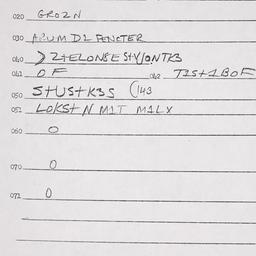 020 GROZN
030 APUM DL PENCTER
040 ZTELONSE STY/ONTKS
041 OF 042 T1ST1BOF
050 STUSTK3S (143
051 LOKSTN M1T M1LX
060 0
070 0
071 0